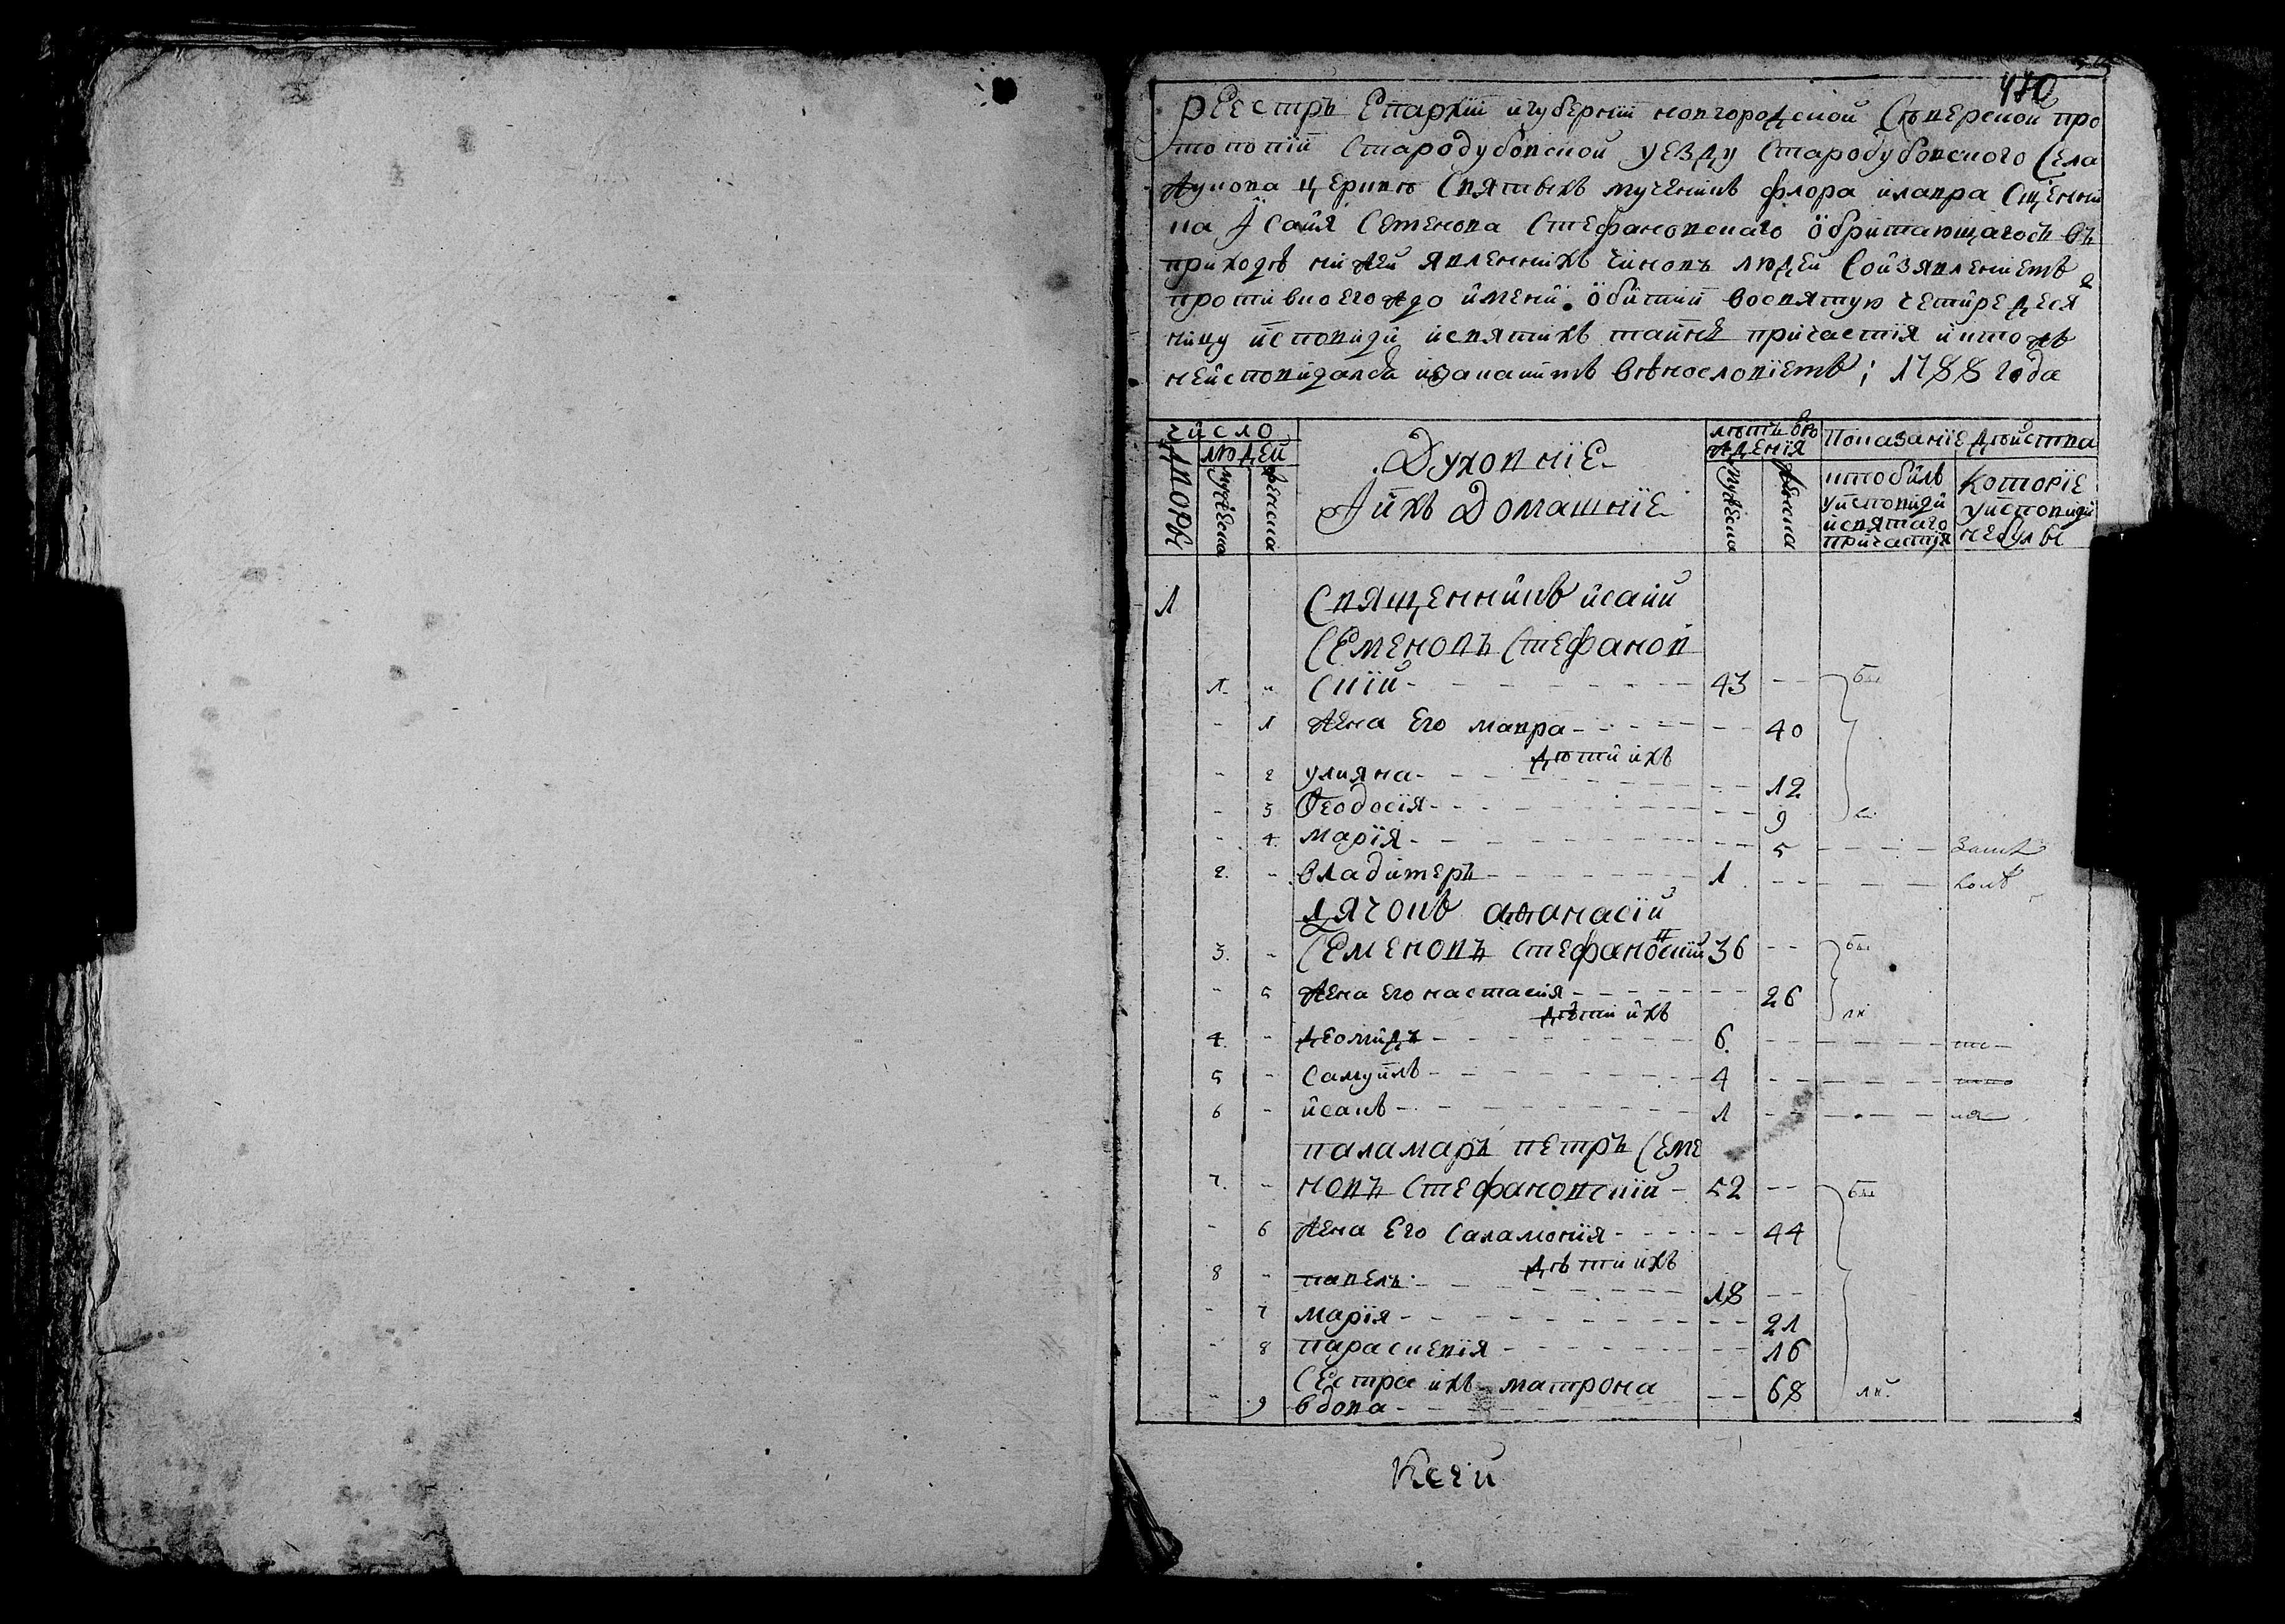 480
Реестръ Епархіи и губерніи новгородской Сѣверской про
топопіи Стародубовской уезду Стародубовского Села
Жукова церкви Святыхъ мученикъ флора и лавра Сщенни
ка Исаія Семенова Стефановскаго обритающагось въ
приходѣ нижей явленнихъ чиновъ людей Соизявлениемъ
противкоегождо имени о битии восвятую четиредеся
ницу исповиди исвятихъ таинъ причастія иктожъ
неисповидался изакаимъ внѣнословіемъ; 1788 года
число
людей
дворы
мужеска
женска
Духовніе
И ихъ Домашніе
лѣтъ бро
жденія
мужеска
женска
Показаніе дѣйства
ктобилъ
уисповиди
исвятаго
причастія
Которіе
уисповиди
небулы
1 Священникъ исаии
Семеновъ Стефанов
1. " скіи 43
" 1 жена Его мавра 40
дѣти ихъ
" 2 улияна 12
" 3 Ѳеодосія 9
" 4. марія 5
2. " владимеръ 1
дячокъ аѳанасіи
3. " Семеновъ стефановскіи 36
" 5 жена его настасия 26
дѣти ихъ
4. " деомидъ 6.
5 " Самуилъ 4
6 " исакъ 1
паламаръ петръ Семе
7. " новъ Стефановскіи 52
" 6 жена Его Саламонія 44
дѣти ихъ
8 " павелъ 18
" 7 марія 21
" 8 параскевія 16
Сестра ихъ матрона
" 9 вдова 68